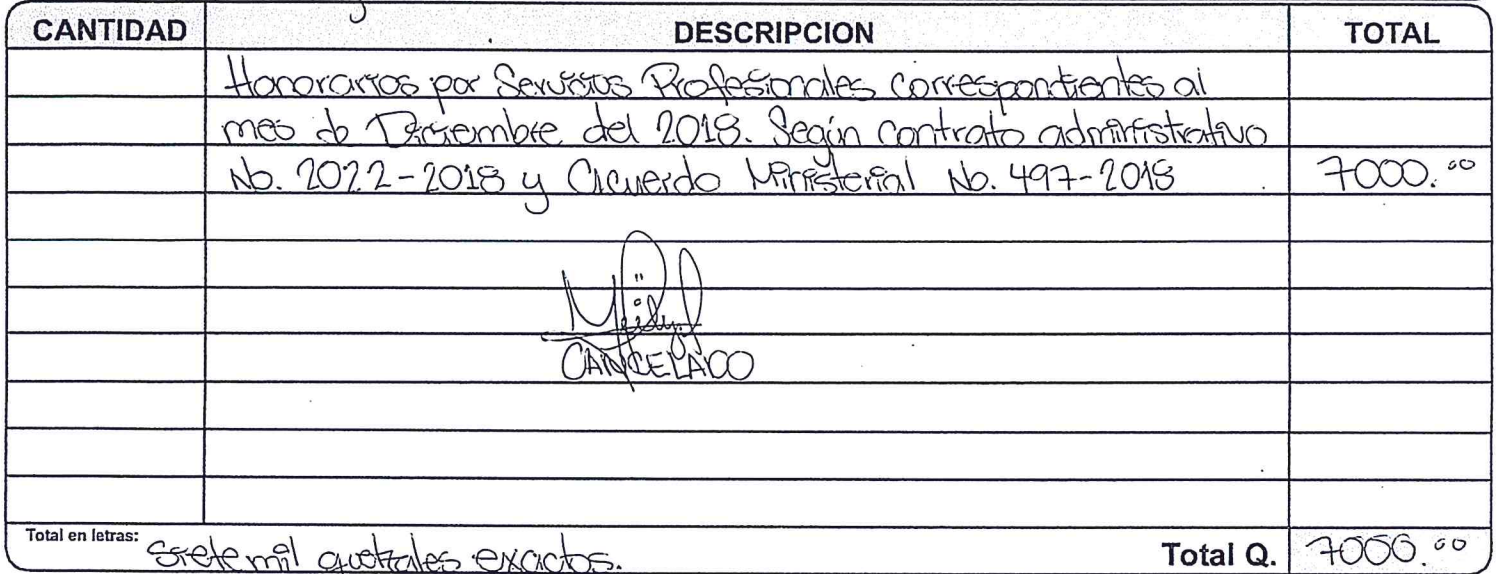 CANTIDAD DESCRIPCION TOTAL
Honorarios por Servicios Profesionales correspondientes al
mes de Diciembre del 2018. Según contrato administrativo
No. 2022-2018 y Acuerdo Ministerial No. 497-2018 7000.00
CANCELADO
Total en letras: Siete mil quetzales exactos. Total Q. 7000.00